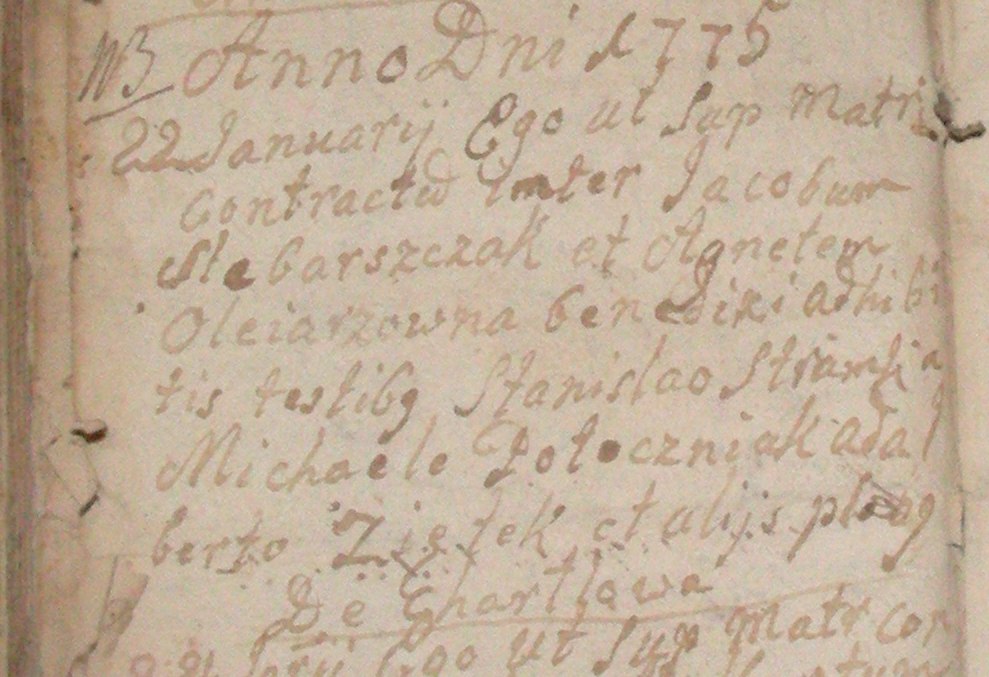 NB Anno Dni 1775
22 Januarij Ego ut Sup Matri
contractū inter Jacobum
Slebarszczak et Agnetem
Oleiarzowna benedixi adhibi
tis testibq Stanislao
Michaele Potoczniak adal
berto Ziętek et alijs
De Chartłowa
Ego ut Sup matr con